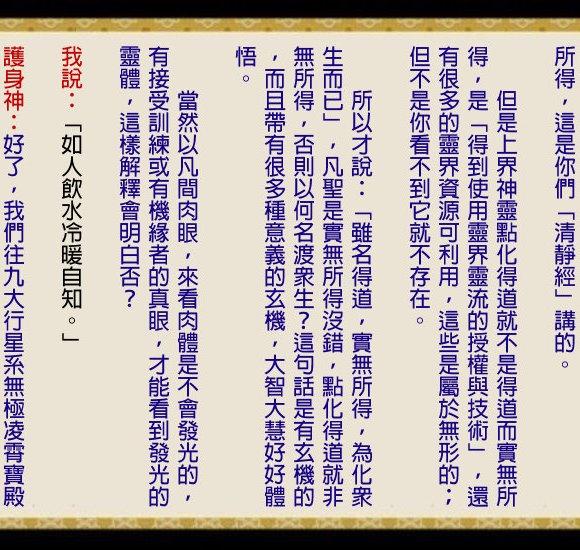 所得，這是你們「清靜經」講的。
但是上界神靈點化得道就不是得道而實無所
得，是「得到使用靈界靈流的授權與技術」，還
有很多的靈界資源可利用，這些是屬於無形的；
但不是你看不到它就不存在。
所以才說：「雖名得道，實無所得，為化衆
生而已」，凡聖是實無所得沒錯，點化得道就非
無所得，否則以何名渡衆生？這句話是有玄機的
，而且帶有很多種意義的玄機，大智大慧好好體
悟。
當然以凡間肉眼，來看肉體是不會發光的，
有接受訓練或有機緣者的真眼，才能看到發光的
靈體，這樣解釋會明白否？
我說：「如人飲水冷暖自知。」
護身神：好了，我們往九大行星系無極凌霄寶殿